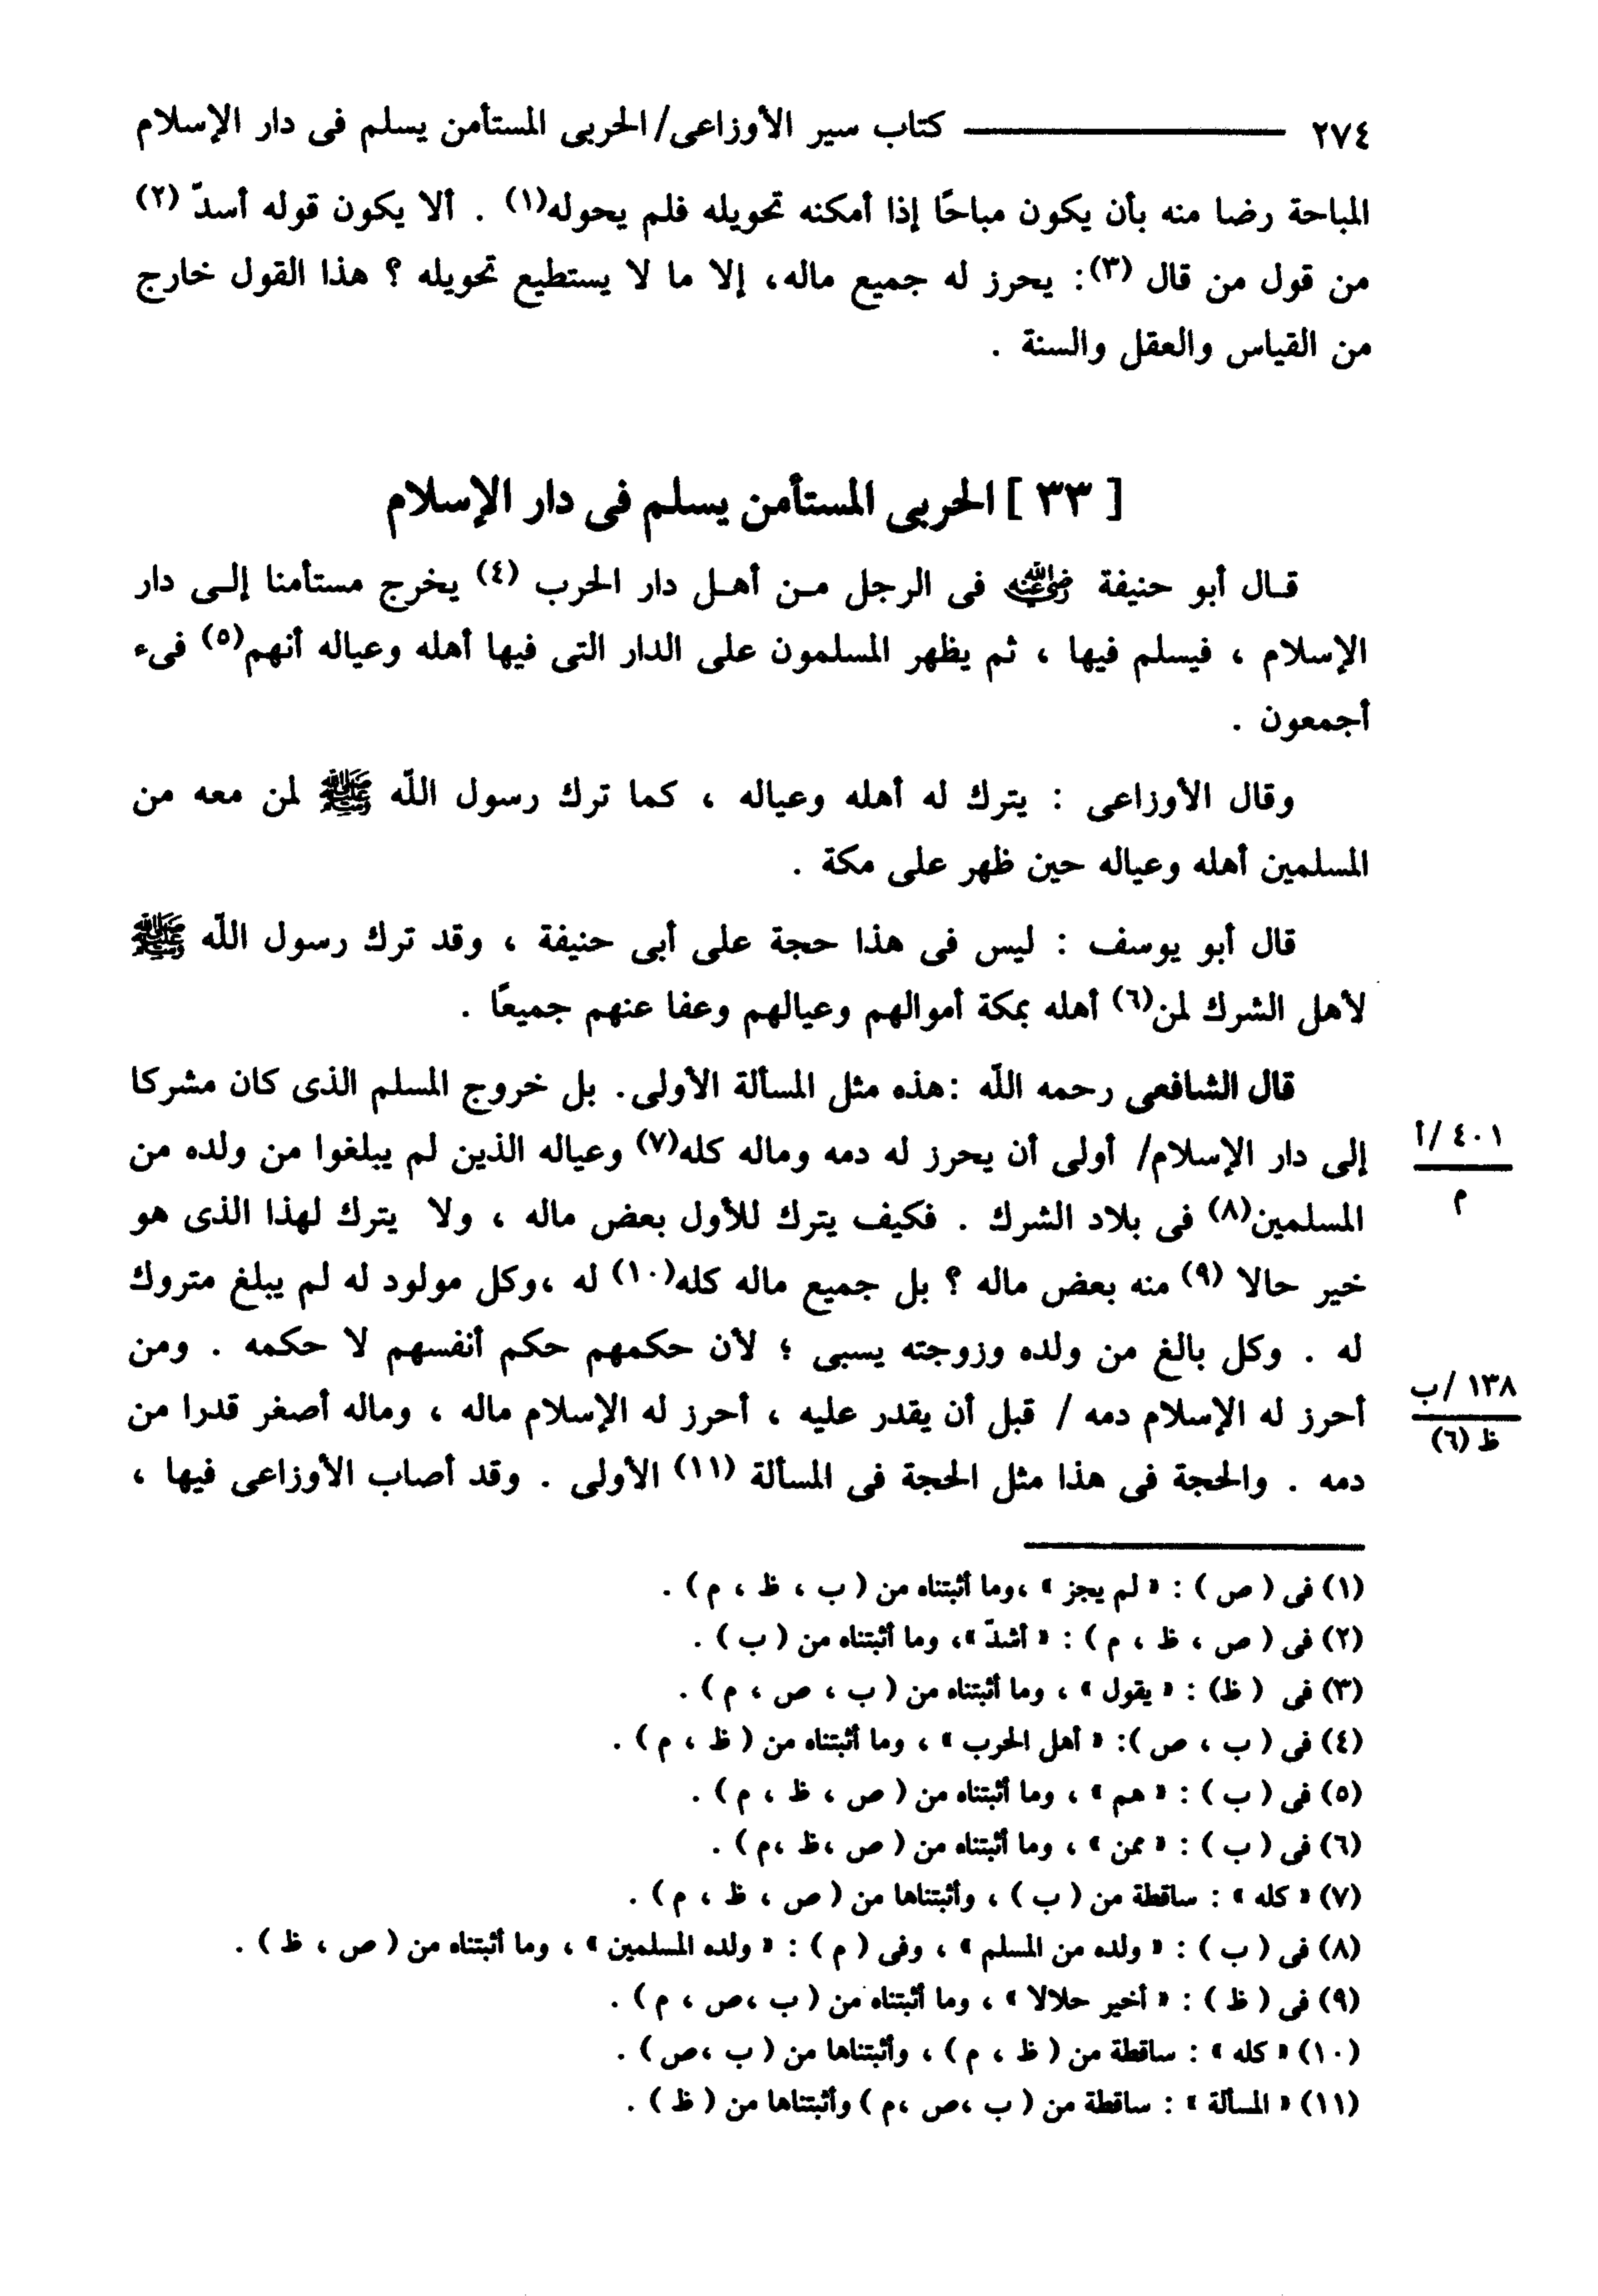 ٢٧٤ ــــــــــــــــ كتاب سير الأوزاعى/ الحربى المستأمن يسلم فى دار الإسلام
المباحة رضا منه بأن يكون مباحًا إذا أمكنه تحويله فلم يحوله(١) . ألا يكون قوله أسدّ (٢)
من قول من قال (٣): يحرز له جميع ماله، إلا ما لا يستطيع تحويله ؟ هذا القول خارج
من القياس والعقل والسنة .
[ ٣٣ ] الحربى المستأمن يسلم فى دار الإسلام
قـال أبو حنيفة رضي الله عنه فى الرجل مـن أهـل دار الحرب (٤) يخرج مستأمنا إلـى دار
الإسلام ، فيسلم فيها ، ثم يظهر المسلمون على الدار التى فيها أهله وعياله أنهم(٥) فىء
أجمعون .
وقال الأوزاعى : يترك له أهله وعياله ، كما ترك رسول اللّه ﷺ لمن معه من
المسلمين أهله وعياله حين ظهر على مكة .
قال أبو يوسف : ليس فى هذا حجة على أبى حنيفة ، وقد ترك رسول اللّه ﷺ
لأهل الشرك لمن(٦) أهله بمكة أموالهم وعيالهم وعفا عنهم جميعًا .
قال الشافعى رحمه اللّه :هذه مثل المسألة الأولى. بل خروج المسلم الذى كان مشركا
إلى دار الإسلام/ أولى أن يحرز له دمه وماله كله(٧) وعياله الذين لم يبلغوا من ولده من
٤٠١ /أ
م
المسلمين(٨) فى بلاد الشرك . فكيف يترك للأول بعض ماله ، ولا يترك لهذا الذى هو
خير حالا (٩) منه بعض ماله ؟ بل جميع ماله كله(١٠) له ،وكل مولود له لم يبلغ متروك
له . وكل بالغ من ولده وزوجته يسبى ؛ لأن حكمهم حكم أنفسهم لا حكمه . ومن
أحرز له الإسلام دمه / قبل أن يقدر عليه ، أحرز له الإسلام ماله ، وماله أصغر قدرا من
١٣٨ /ب
ظ (٦)
دمه . والحجة فى هذا مثل الحجة فى المسألة (١١) الأولى . وقد أصاب الأوزاعى فيها ،
(١) فى ( ص ) : « لم يجز » ،وما أثبتناه من ( ب ، ظ ، م ) .
(٢) فى ( ص ، ظ ، م ) : « أشدّ »، وما أثبتناه من ( ب ) .
(٣) فى ( ظ) : « يقول » ، وما أثبتناه من ( ب ، ص ، م ) .
(٤) فى ( ب ، ص ): « أهل الحرب » ، وما أثبتناه من ( ظ ، م ) .
(٥) فى ( ب ) : « هم » ، وما أثبتناه من ( ص ، ظ ، م ) .
(٦) فى ( ب ) : « ممن » ، وما أثبتناه من ( ص ،ظ ،م ) .
(٧) « كله » : ساقطة من ( ب ) ، وأثبتناها من ( ص ، ظ ، م ) .
(٨) فى ( ب ) : « ولده من المسلم » ، وفى ( م ) : « ولده المسلمين » ، وما أثبتناه من ( ص ، ظ ) .
(٩) فى ( ظ ) : « أخير حلالا » ، وما أثبتناه من ( ب ،ص ، م ) .
(١٠) « كله » : ساقطة من ( ظ ، م ) ، وأثبتناها من ( ب ،ص ) .
(١١) « المسألة » : ساقطة من ( ب ،ص ،م ) وأثبتناها من ( ظ ) .